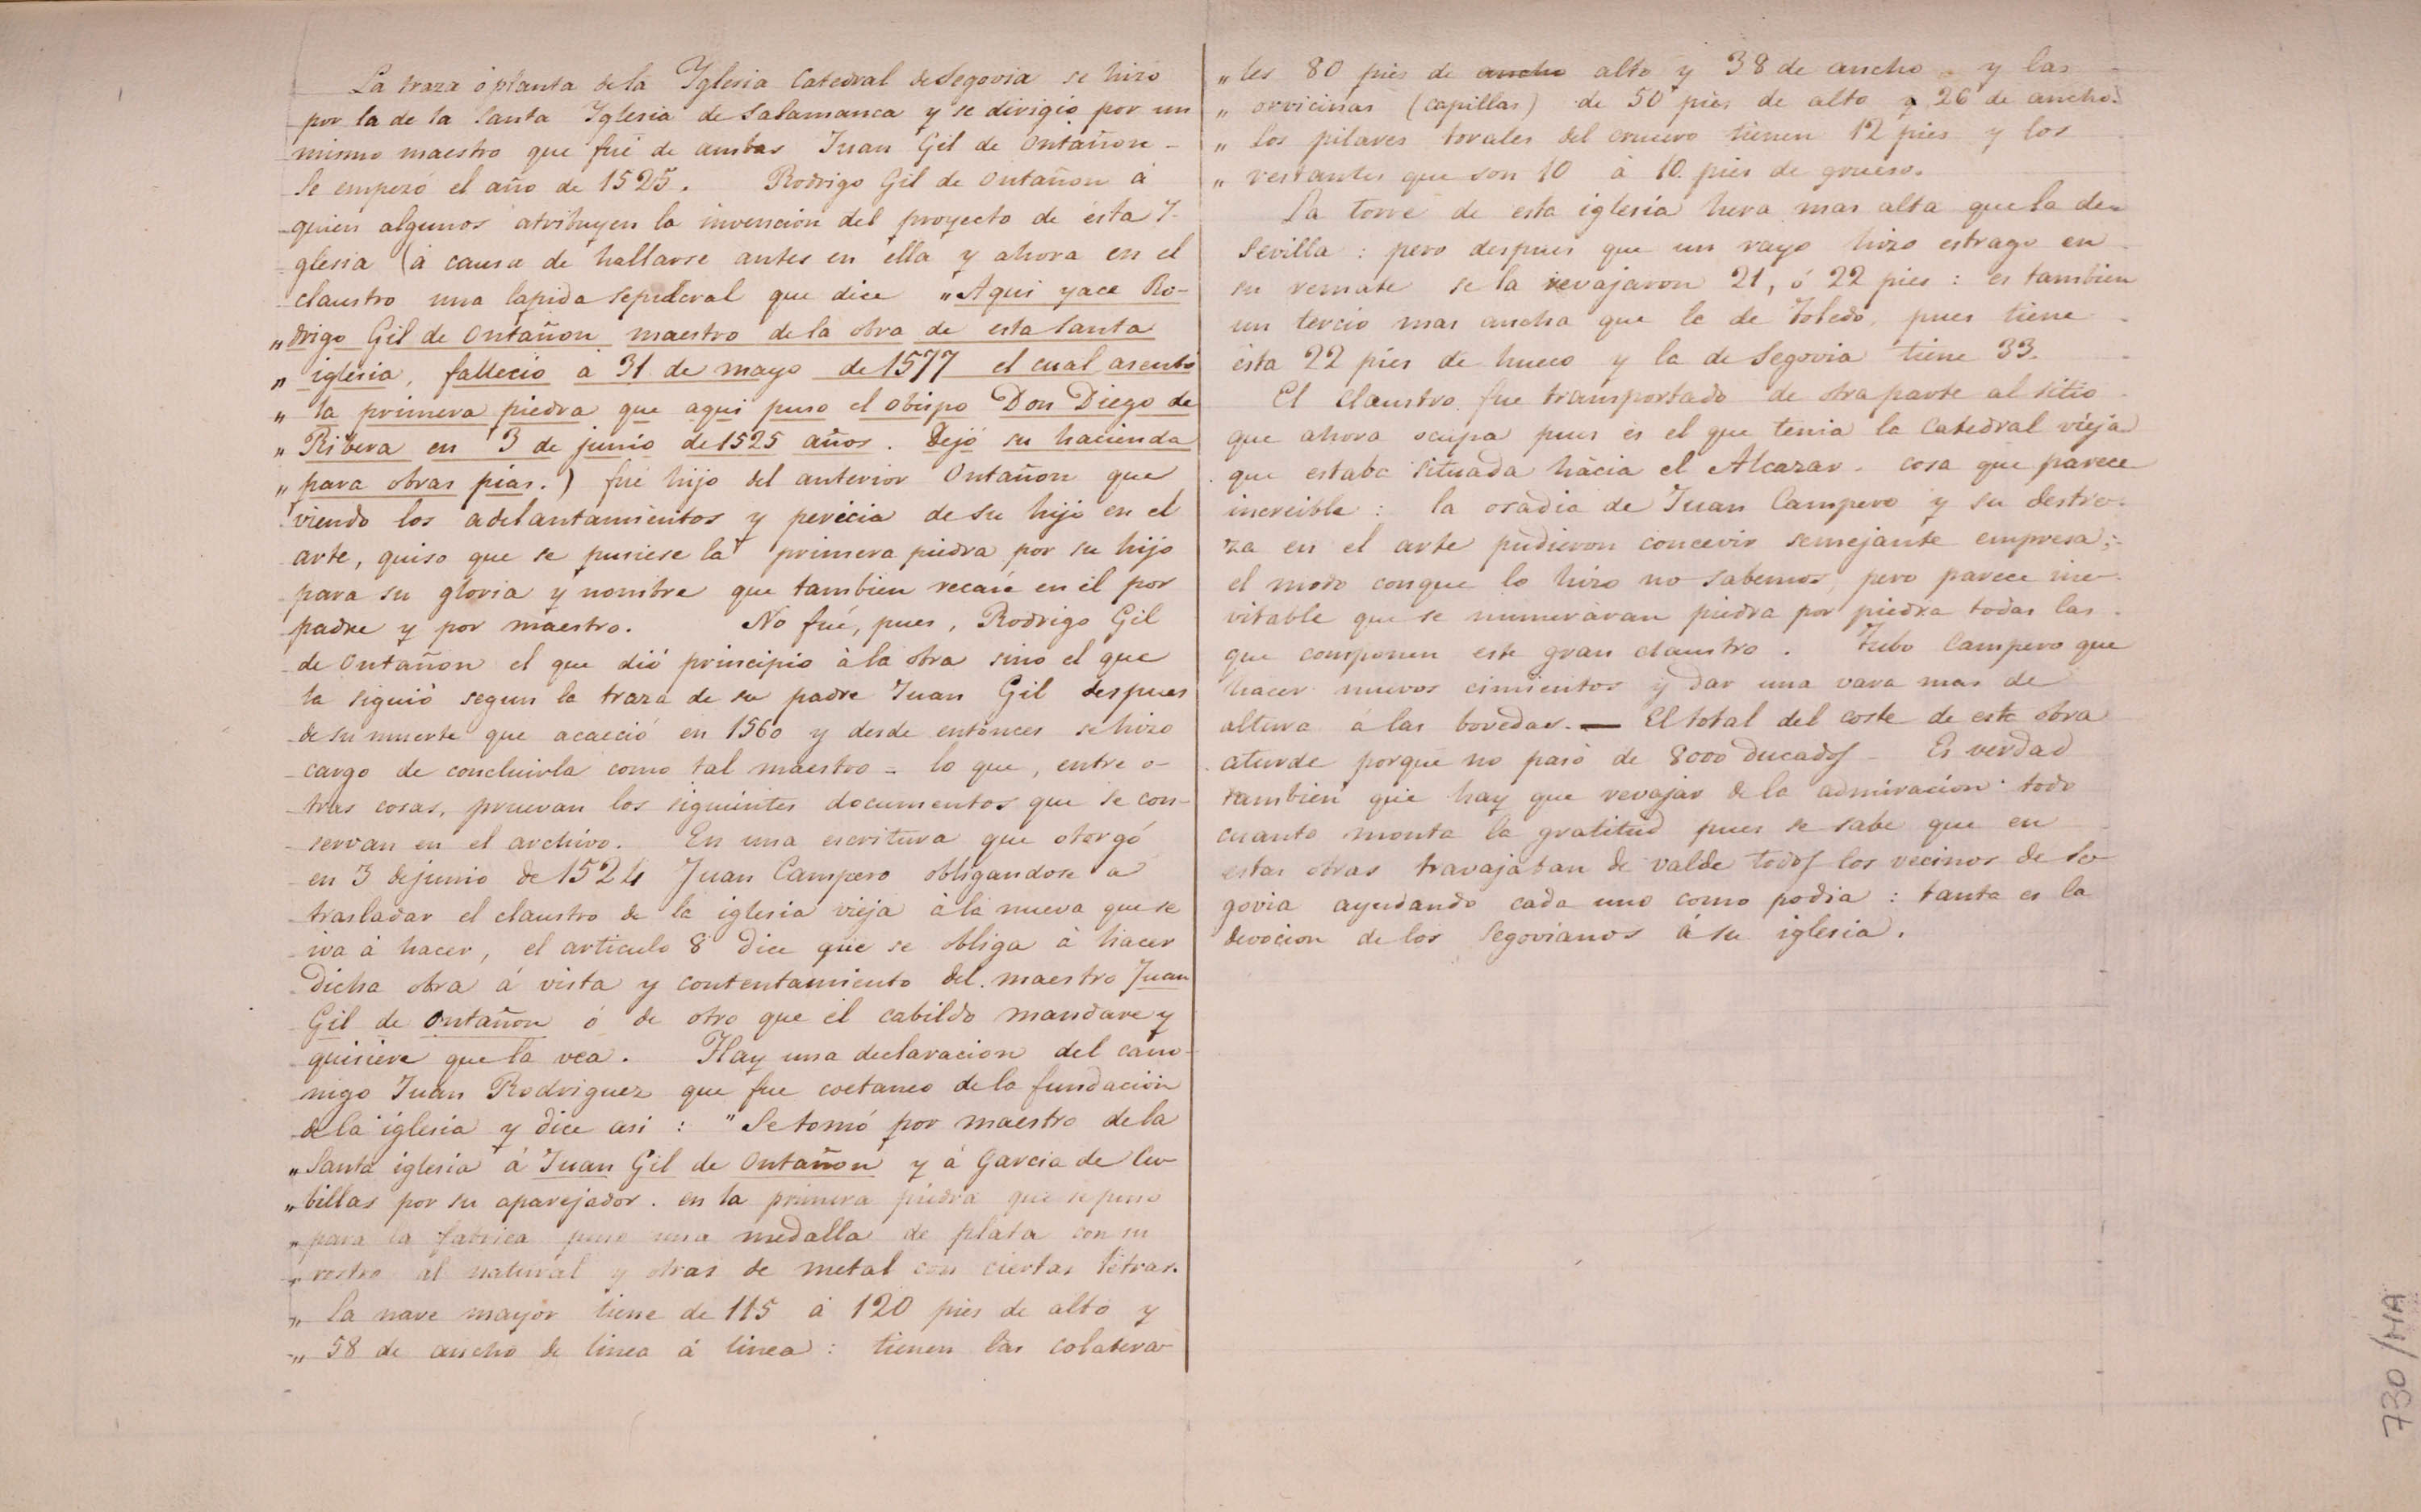 La traza ó planta de la Yglesia Catedral de Segovia se hizo
por la de la Santa Yglesia de Salamanca y se dirigió por un
mismo maestro que fué de ambas Juan Gil de Ontañon -
Se empezó el año de 1525. Rodrigo Gil de Ontañon á
quien algunos atribuyen la invencion del proyecto de ésta Y-
glesia (á causa de hallarse antes en ella y ahora en el
claustro una lapida sepulcral que dice „Aqui yace Ro-
„drigo Gil de Ontañon maestro de la obra de esta Santa
„ iglesia, fallecio á 31 de mayo de 1577 el cual asentó
„ la primera piedra que aqui puso el obispo Don Diego de
„ Ribera en 3 de junio de 1525 años. Dejó su hacienda
„ para obras pias.) fué hijo del anterior Ontañon que
viendo los adelantamientos y pericia de su hijo en el
arte, quiso que se pusiese la primera piedra por su hijo
para su gloria y nombre que tambien recaíe en él por
padre y por maestro. No fué, pues, Rodrigo Gil
de Ontañon el que dió principio á la obra sino el que
la siguió segun la traza de su padre Juan Gil despues
de su muerte que acaeció en 1560 y desde entónces se hizo
cargo de concluirla como tal maestro = lo que, entre o-
tras cosas, pruevan los siguientes documentos que se con-
servan en el archivo. En una escritura que otorgó
en 3 de junio de 1524 Juan Campero obligandose a
trasladar el claustro de la iglesia vieja á la nueva que se
iva á hacer, el articulo 8 dice que se obliga á hacer
dicha obra á vista y contentamiento del maestro Juan
Gil de Ontañon ó de otro que el cabildo mandare y
quisiere que la vea. Hay una declaracion del cano-
nigo Juan Rodriguez que fue coetaneo de la fundación
de la iglesia y dice asi : "Se tomó por maestro de la
„Santa iglesia á Juan Gil de Ontañon y á Garcia de Cu-
„billas por su aparejador. en la primera piedra que se puso
„para la fabrica puso una medalla de plata con su
„rostro al natural y otras de metal con ciertas letras.
„ La nave mayor tiene de 115 á 120 pies de alto y
„ 58 de ancho de linea á linea : tienen las colatera-
„les 80 pies de ancho alto y 38 de ancho y las
„ orvicinas (capillas) de 50 pies de alto y 26 de ancho.
„ Los pilares torales del crucero tienen 12 pies y los
„ restantes que son 10 á 10 pies de grueso.
La torre de esta iglesia hera mas alta que la de
Sevilla : pero despues que un rayo hizo estrago en
su remate se la revajaron 21, ó 22 pies : es tambien
un tercio mas ancha que la de Toledo, pues tiene
ésta 22 pies de hueco y la de Segovia tiene 33.
El claustro fue transportado de otra parte al sitio
que ahora ocupa pues es el que tenia la Catedral vieja
que estaba situada hácia el Alcazar. cosa que parece
increible : la osadia de Juan Campero y su destre-
za en el arte pudieron concevir semejante empresa;
el modo conque lo hizo no sabemos, pero parece ine-
vitable que se numeraran piedra por piedra todas las
que componen este gran claustro. Tubo Campero que
hacer nuevos cimientos y dar una vara mas de
altura á las bovedas. — El total del coste de esta obra
aturde porque no pasó de 8000 ducados - Es verdad
tambien que hay que revajar de la admiracion todo
cuanto monta la gratitud pues se sabe que en
estas obras travajaban de valde todos los vecinos de Se-
govia ayudando cada uno como podia : tanta es la
devocion de los Segovianos á su iglesia.
730/HA